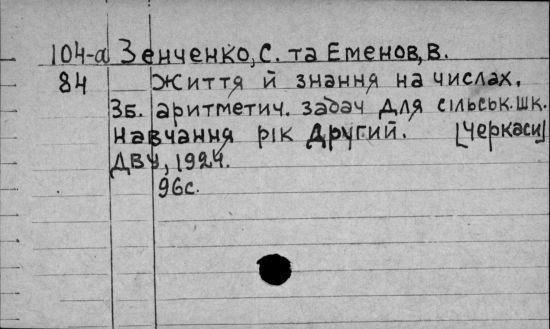 104-а Зенченко, С. та Еменов, В.
84 Життя й знання на числах.
Зб. аритметич. задач для сільськ. шк.
Навчання рік другий. [Черкаси]
ДВУ, 1924.
96с.